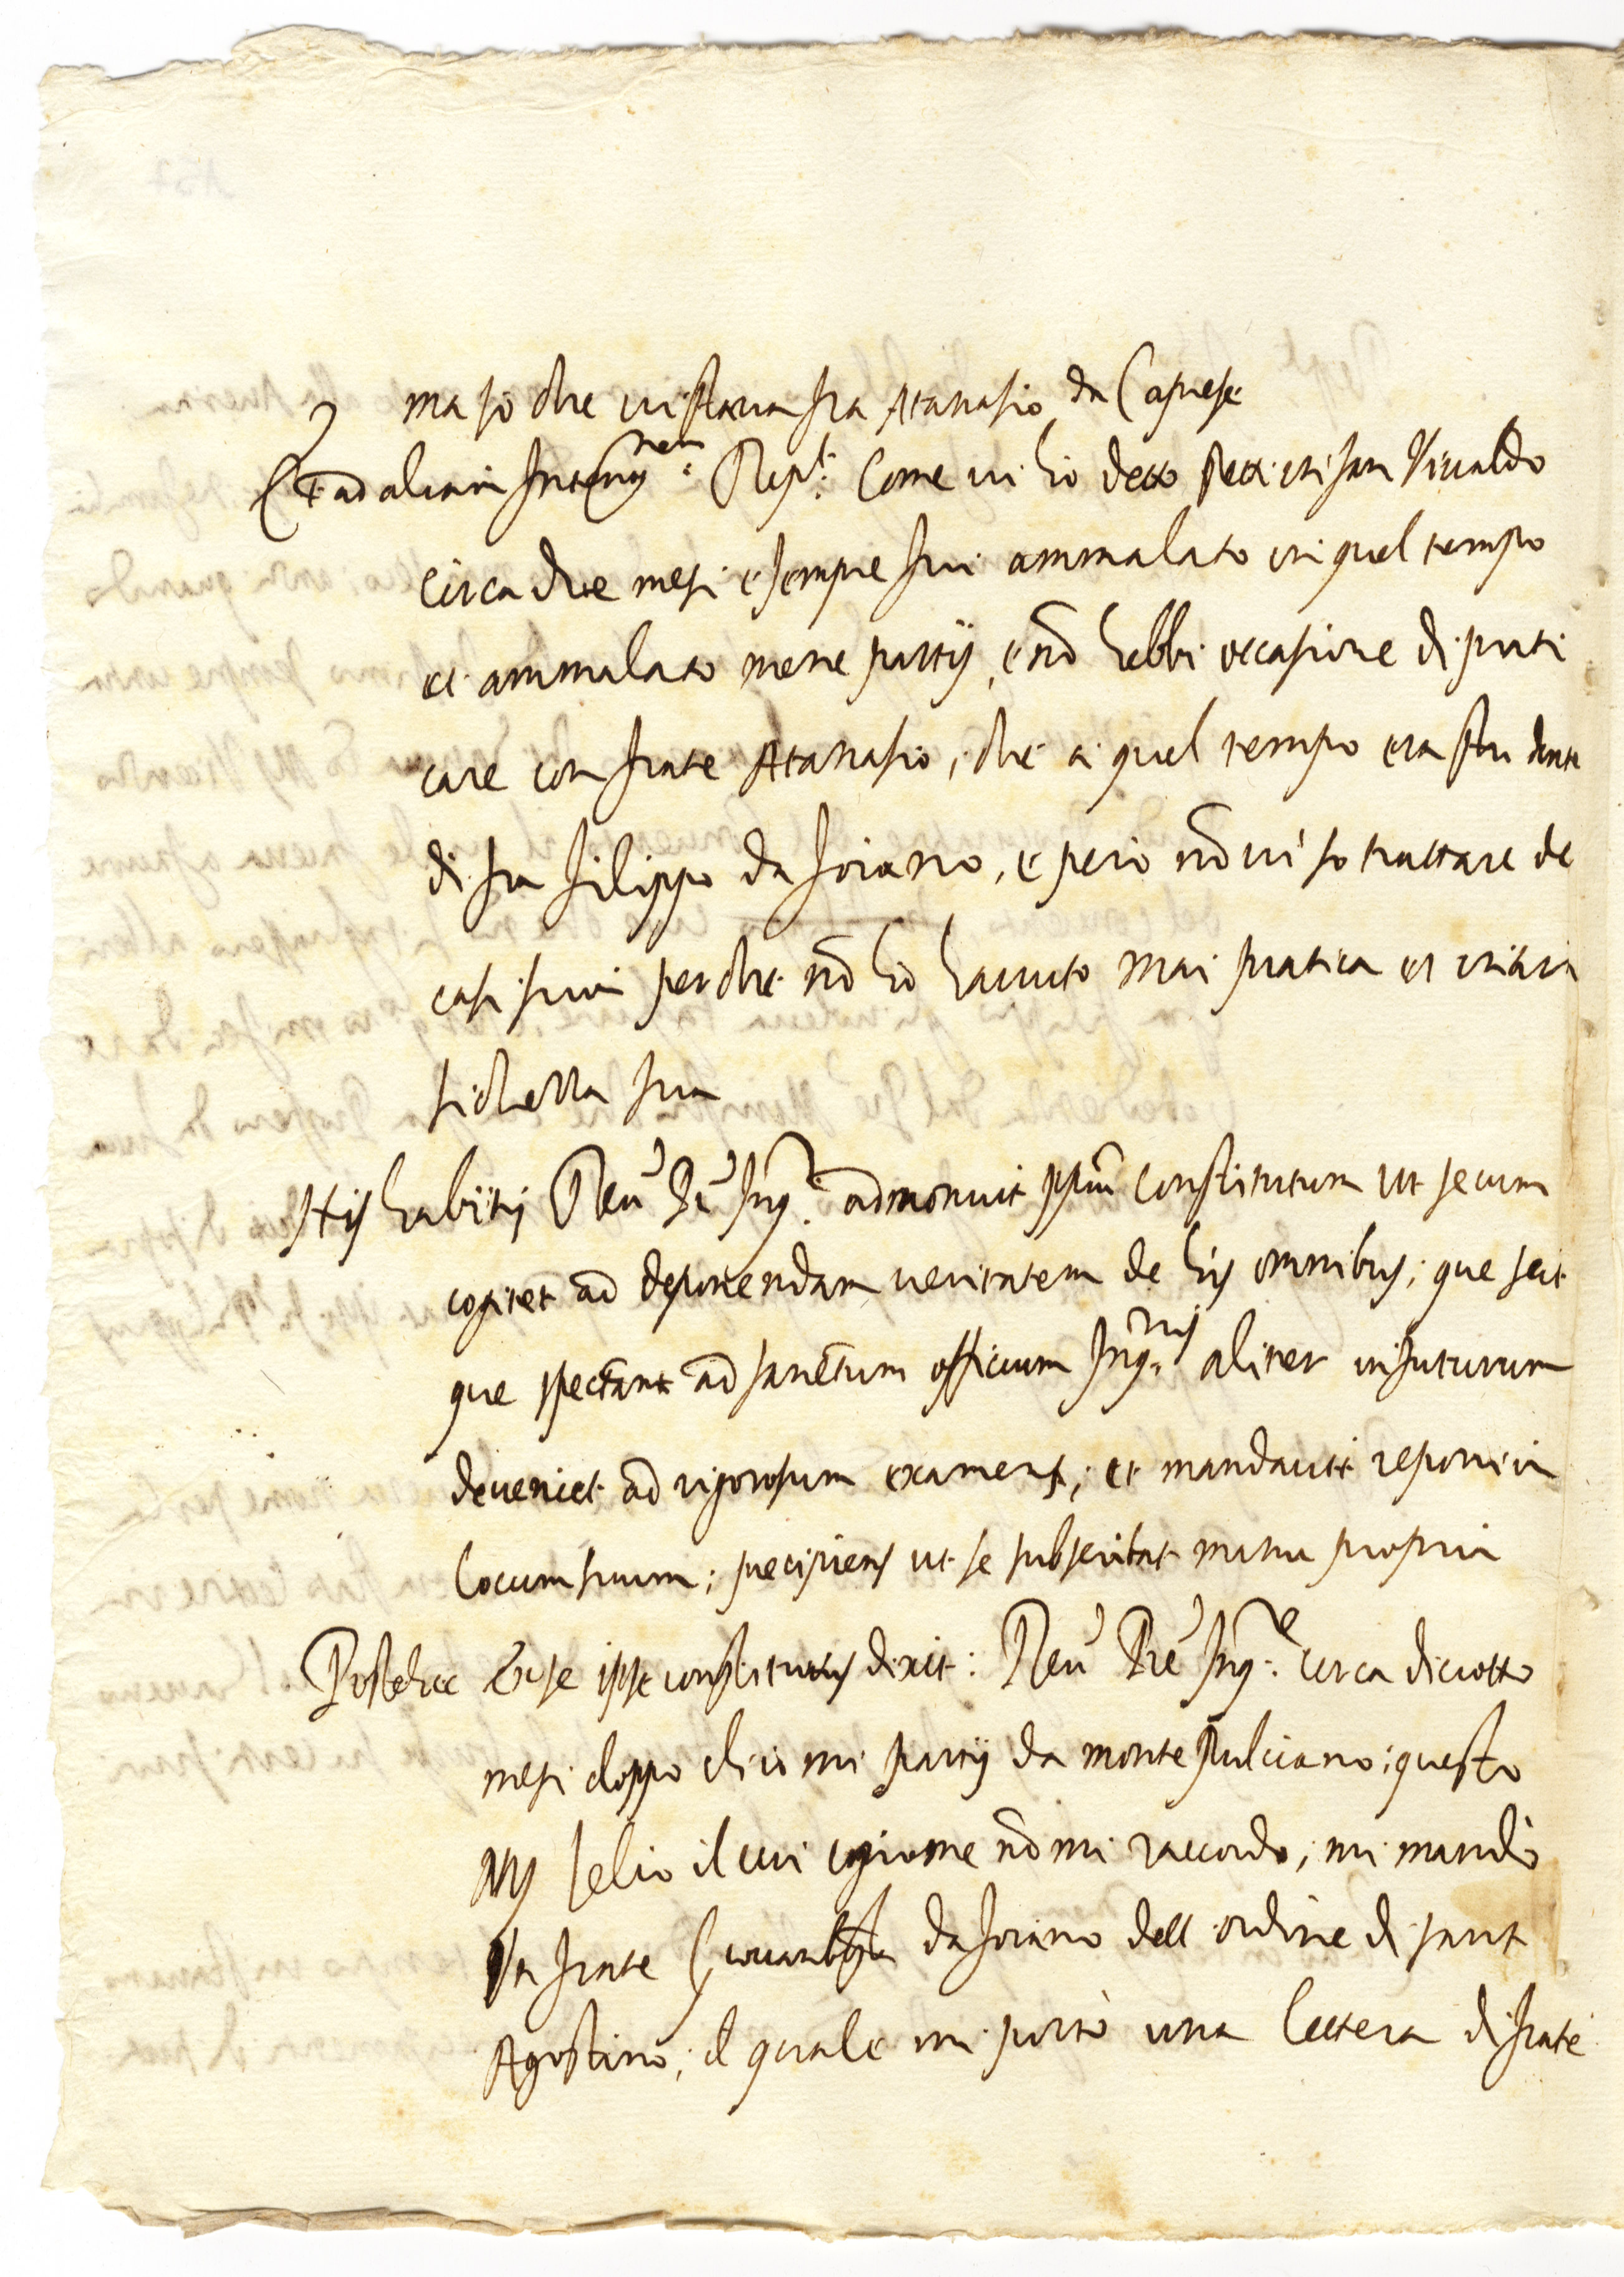 ma so che vi stava fra Atanasio da Caprese
Et ad aliam Interog.nem Resp.t Come vi ho detto stetti in san Vivaldo
circa due mesi e sempre fui ammalato in quel tempo
et ammalato mene partij, e nō hebbi occasione di prati
care con frate Atanasio, che a quel tempo era stu dente
di fra filippo da soiano, e però nō vi so trattare de
casi suoi perche nō ho havuto mai pratica et intrin
sichezza sua
His habitis Reu. P. Inq.r admonuit ipsū constitutum ut secum
cogitet ad deponendam veritatem de his omnibus, que scit
que spectant ad sanctum officium Inq.nis aliter in futurum
deveniet ad rigorosum examens, et mandavit reponi in
locum suum; precipiens ut se subscribat manu propria
Postea ex se ipse constitutus dixit: Reu Pre Inq.re circa diciotto
mesi doppo ch' io mi partij da monte Pulciano, questo
lelio il cui cognome nō mi raccordo, mi mandò
un frate da soiano dell ordine di sant
Agostino, il quale mi portò una lettera di frate